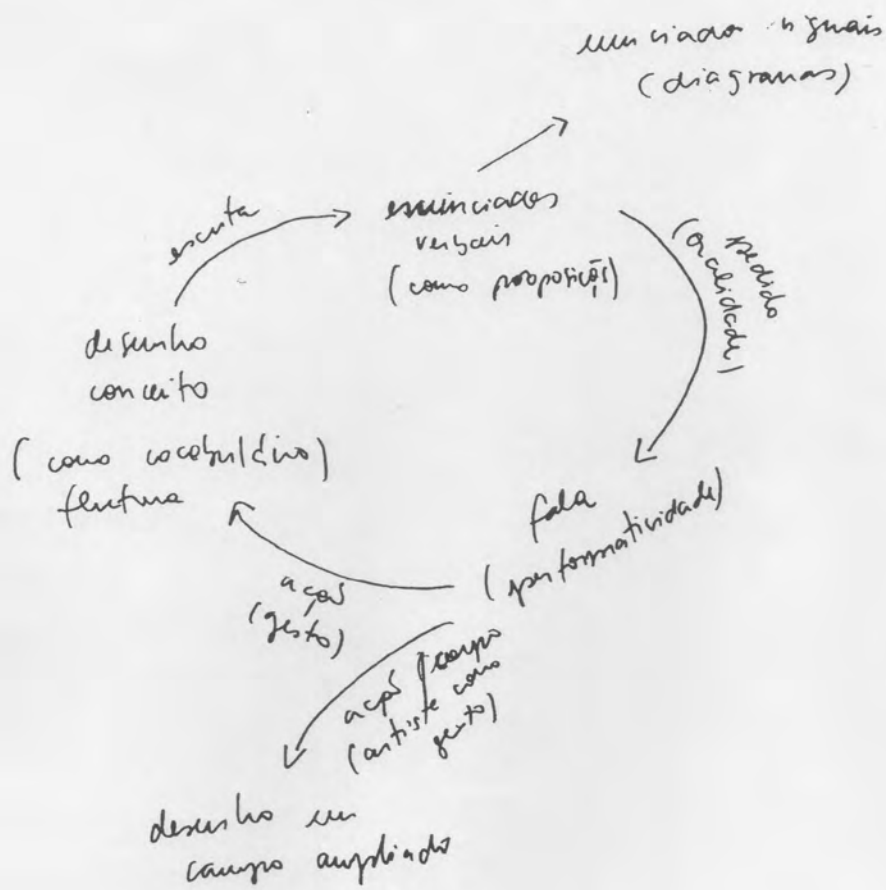 enunciados
(diagramas)
escrita
enunciados
verbais
(como proposições)
pedido
(oralidade)
desenho
conceito
(como vocabulário)
fala
(performatividade)
ação
(gesto)
ação corpo
(artista como
gesto)
desenho em
campo ampliado